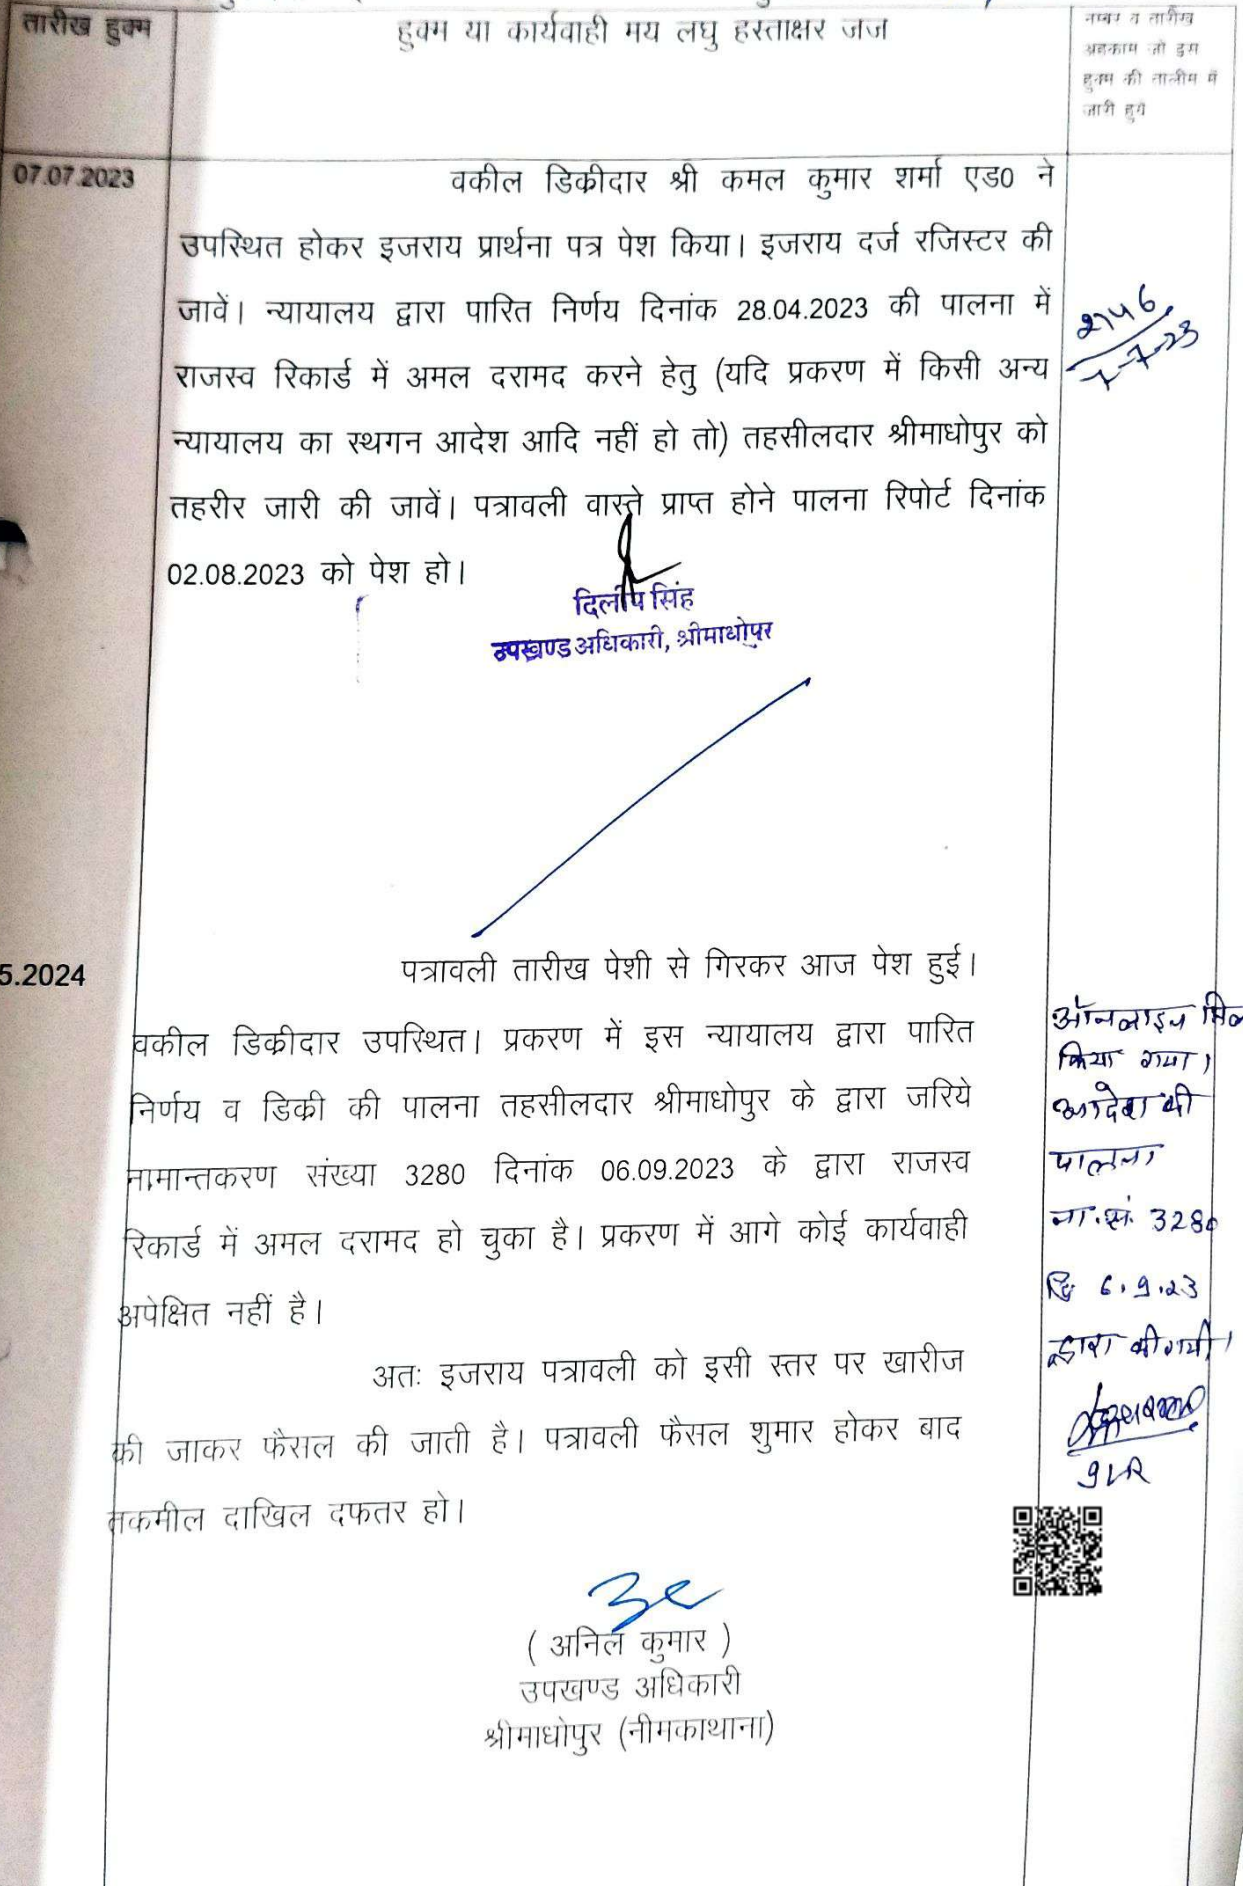 तारीख हुक्म
हुक्म या कार्यवाही मय लघु हस्ताक्षर जज
नम्बर व तारीख
अहकाम जो इस
हुक्म की तालीम में
जारी हुये
07.07.2023
वकील डिक्रीदार श्री कमल कुमार शर्मा एड0 ने
उपस्थित होकर इजराय प्रार्थना पत्र पेश किया। इजराय दर्ज रजिस्टर की
जावें। न्यायालय द्वारा पारित निर्णय दिनांक 28.04.2023 की पालना में
राजस्व रिकार्ड में अमल दरामद करने हेतु (यदि प्रकरण में किसी अन्य
न्यायालय का स्थगन आदेश आदि नहीं हो तो) तहसीलदार श्रीमाधोपुर को
तहरीर जारी की जावें। पत्रावली वास्ते प्राप्त होने पालना रिपोर्ट दिनांक
02.08.2023 को पेश हो।
2746
7-7-23
दिलीप सिंह
उपखण्ड अधिकारी, श्रीमाधोपुर
5.2024
पत्रावली तारीख पेशी से गिरकर आज पेश हुई।
वकील डिक्रीदार उपस्थित। प्रकरण में इस न्यायालय द्वारा पारित
निर्णय व डिक्री की पालना तहसीलदार श्रीमाधोपुर के द्वारा जरिये
नामान्तकरण संख्या 3280 दिनांक 06.09.2023 के द्वारा राजस्व
रिकार्ड में अमल दरामद हो चुका है। प्रकरण में आगे कोई कार्यवाही
अपेक्षित नहीं है।
अतः इजराय पत्रावली को इसी स्तर पर खारीज
की जाकर फैसल की जाती है। पत्रावली फैसल शुमार होकर बाद
तकमील दाखिल दफतर हो।
ऑनलाइन
किया गया।
आदेश की
पालना
ना.सं. 3280
दि 6.9.23
द्वारा की गयी।
( अनिल कुमार )
उपखण्ड अधिकारी
श्रीमाधोपुर (नीमकाथाना)